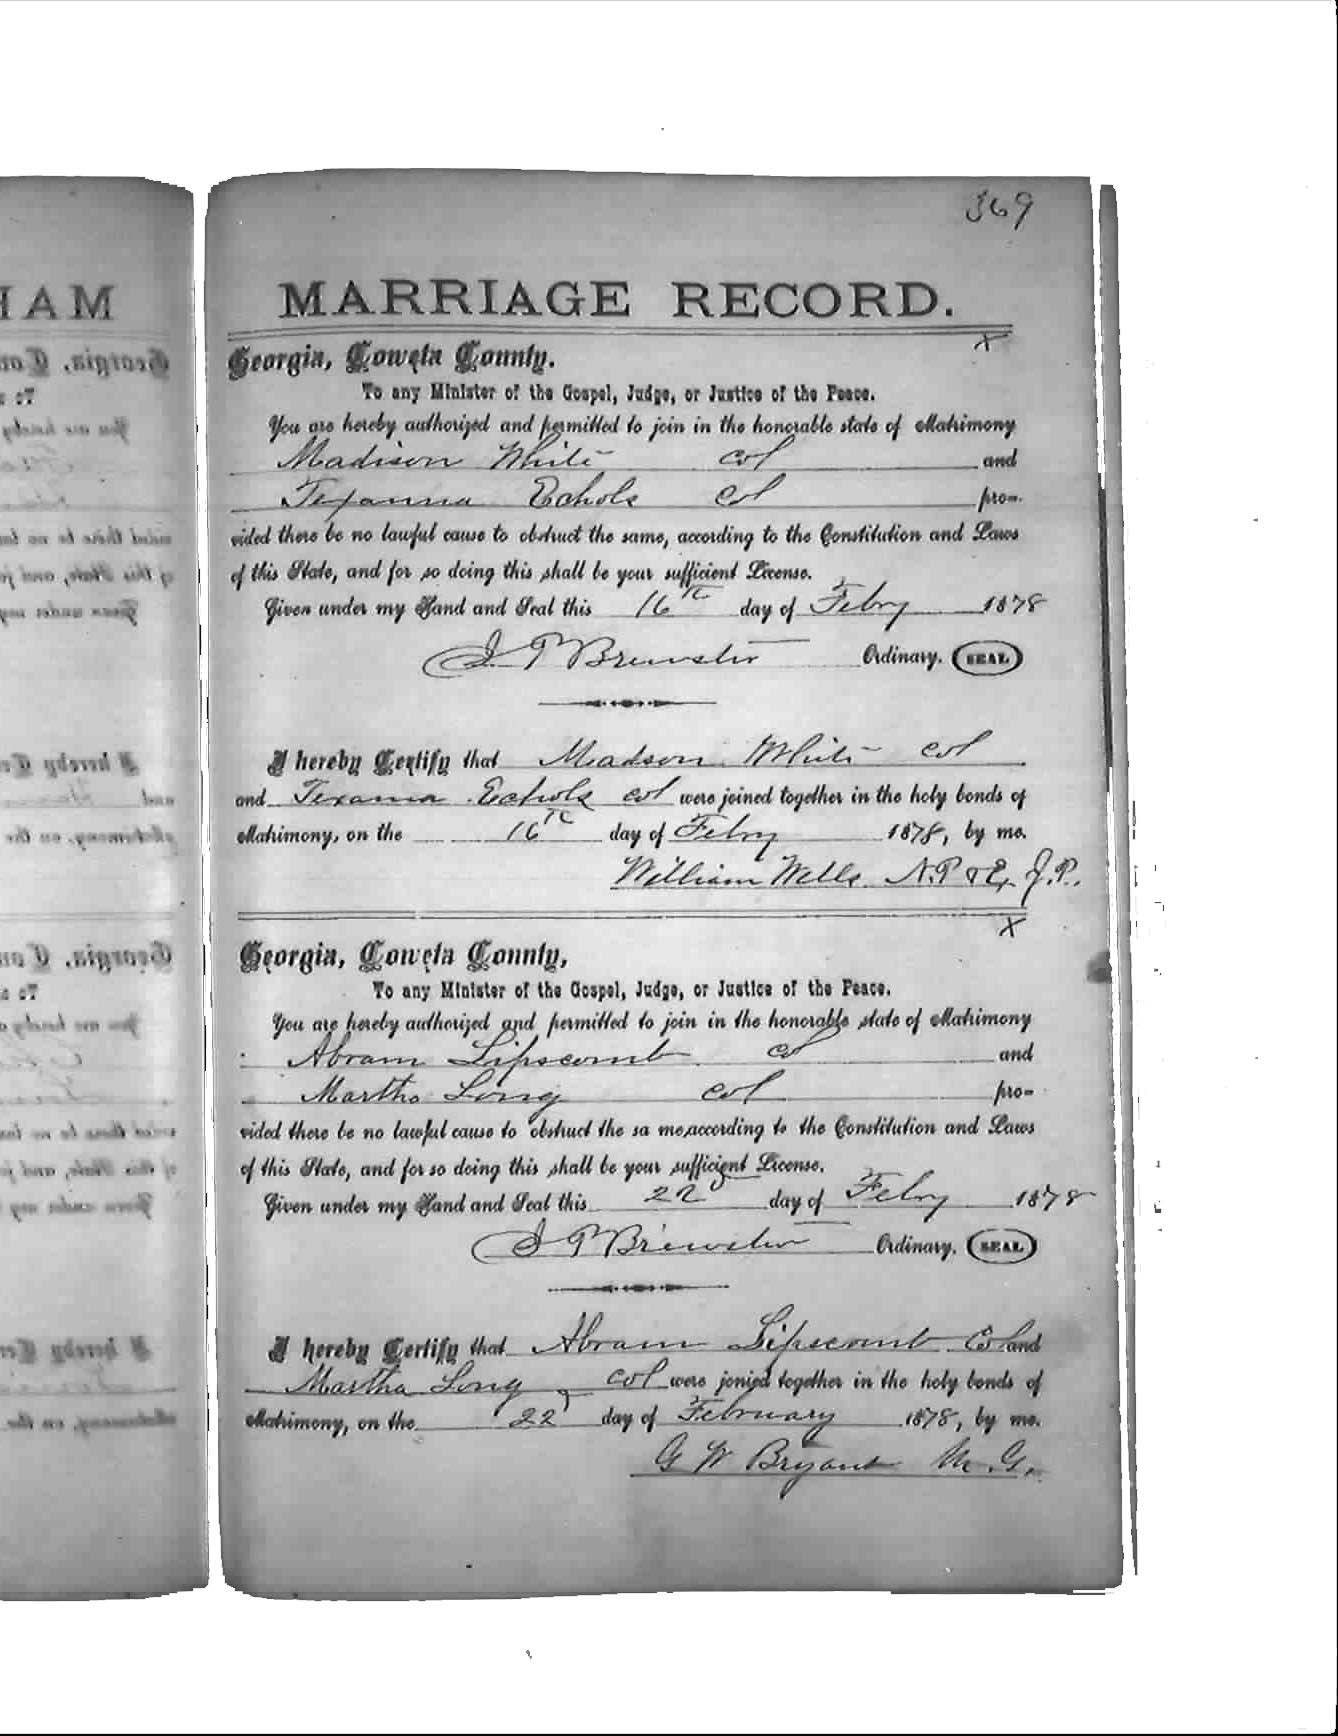 369
MARRIAGE RECORD.
X
Georgia, Coweta County.
To any Minister of the Gospel, Judge, or Justice of the Peace.
You are hereby authorized and permitted to join in the honorable state of Matrimony
Madison White col and
Texanna Echols col pro-
vided there be no lawful cause to obstruct the same, according to the Constitution and Laws
of this State, and for so doing this shall be your sufficient License.
Given under my Hand and Seal this 16th day of Febry 1878
J P Brewster Ordinary. SEAL
I hereby Certify that Madson White col
and Texanna Echols col were joined together in the holy bonds of
Matrimony, on the 16th day of Febry 1878, by me.
William Wells N.P & Ex J.P.
X
Georgia, Coweta County,
To any Minister of the Gospel, Judge, or Justice of the Peace.
You are hereby authorized and permitted to join in the honorable state of Matrimony
Abram Lipscomb col and
Martha Long col pro-
vided there be no lawful cause to obstruct the sa me,according to the Constitution and Laws
of this State, and for so doing this shall be your sufficient License.
Given under my Hand and Seal this 22d day of Febry 1878
J P Brewster Ordinary. SEAL
I hereby Certify that Abram Lipscomb Col and
Martha Long col were jonied together in the holy bonds of
Matrimony, on the 22d day of February 1878, by me.
G W Bryant M.G.